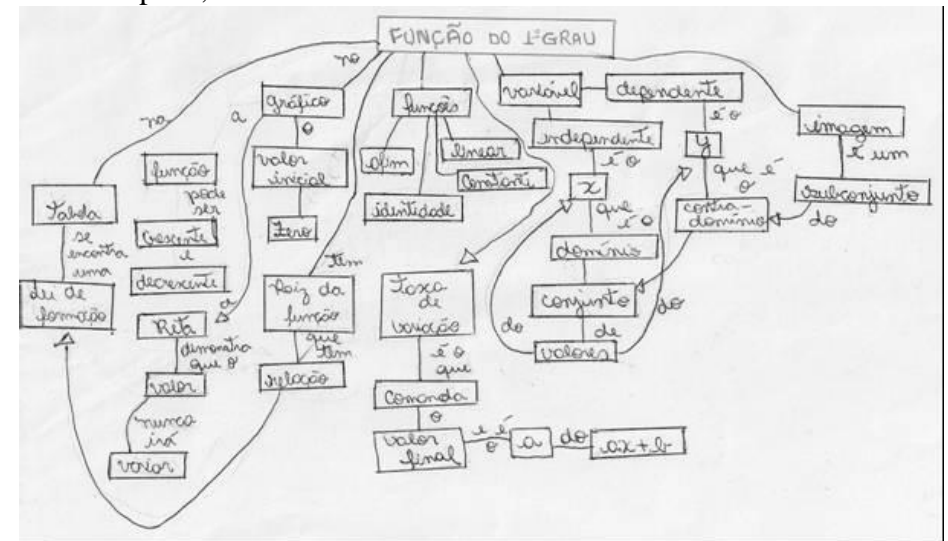 FUNÇÃO DO 1º GRAU
na
a
no
gráfico
o
valor
inicial
zero
função
pode
ser
crescente
e
decrescente
Tabela
se
encontra
uma
lei de
formação
a
Reta
demonstra
que o
valor
nunca
irá
variar
tem
Raiz da
função
que
tem
relação
funções
afim
linear
Constante
identidade
Taxa
de
variação
é o
que
Comanda
o
valor
final
e é
o
a
do
ax+b
variável
dependente
é o
y
que é
o
contra-
domínio
independente
é o
x
que
é o
domínio
conjunto
de
valores
do
do
imagem
é um
subconjunto
do